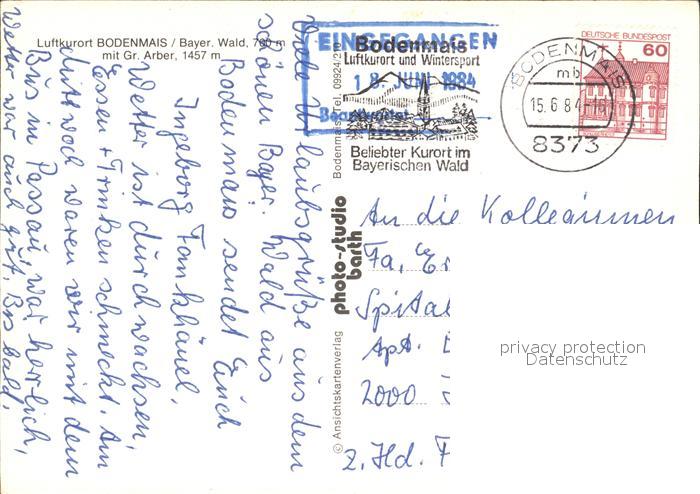 Luftkurort BODENMAIS / Bayer. Wald, 700 m
mit Gr. Arber, 1457 m
Viele Urlaubsgrüße aus dem
schönen Bayr. Wald aus
Bodenmais sendet Euch
Ingeborg
Wetter ist durchwachsen,
Essen + Trinken schmeckt. Am
waren wir mit dem
Bus in Passau, war herrlich,
Wetter war auch gut. Bis bald.
EINGEGANGEN
18. JUNI 1984
Beantwortet
Bodenmais
Luftkurort und Wintersport
Beliebter Kurort im
Bayerischen Wald
BODENMAIS
mb
15.6.84-16
8373
DEUTSCHE BUNDESPOST
60
Bodenmais, Tel. 09924/2
photo-studio
barth
© Ansichtskartenverlag
An die Kolleginnen
Fa. Er
Spital
Apt.
2000
z. Hd. F
privacy protection
Datenschutz